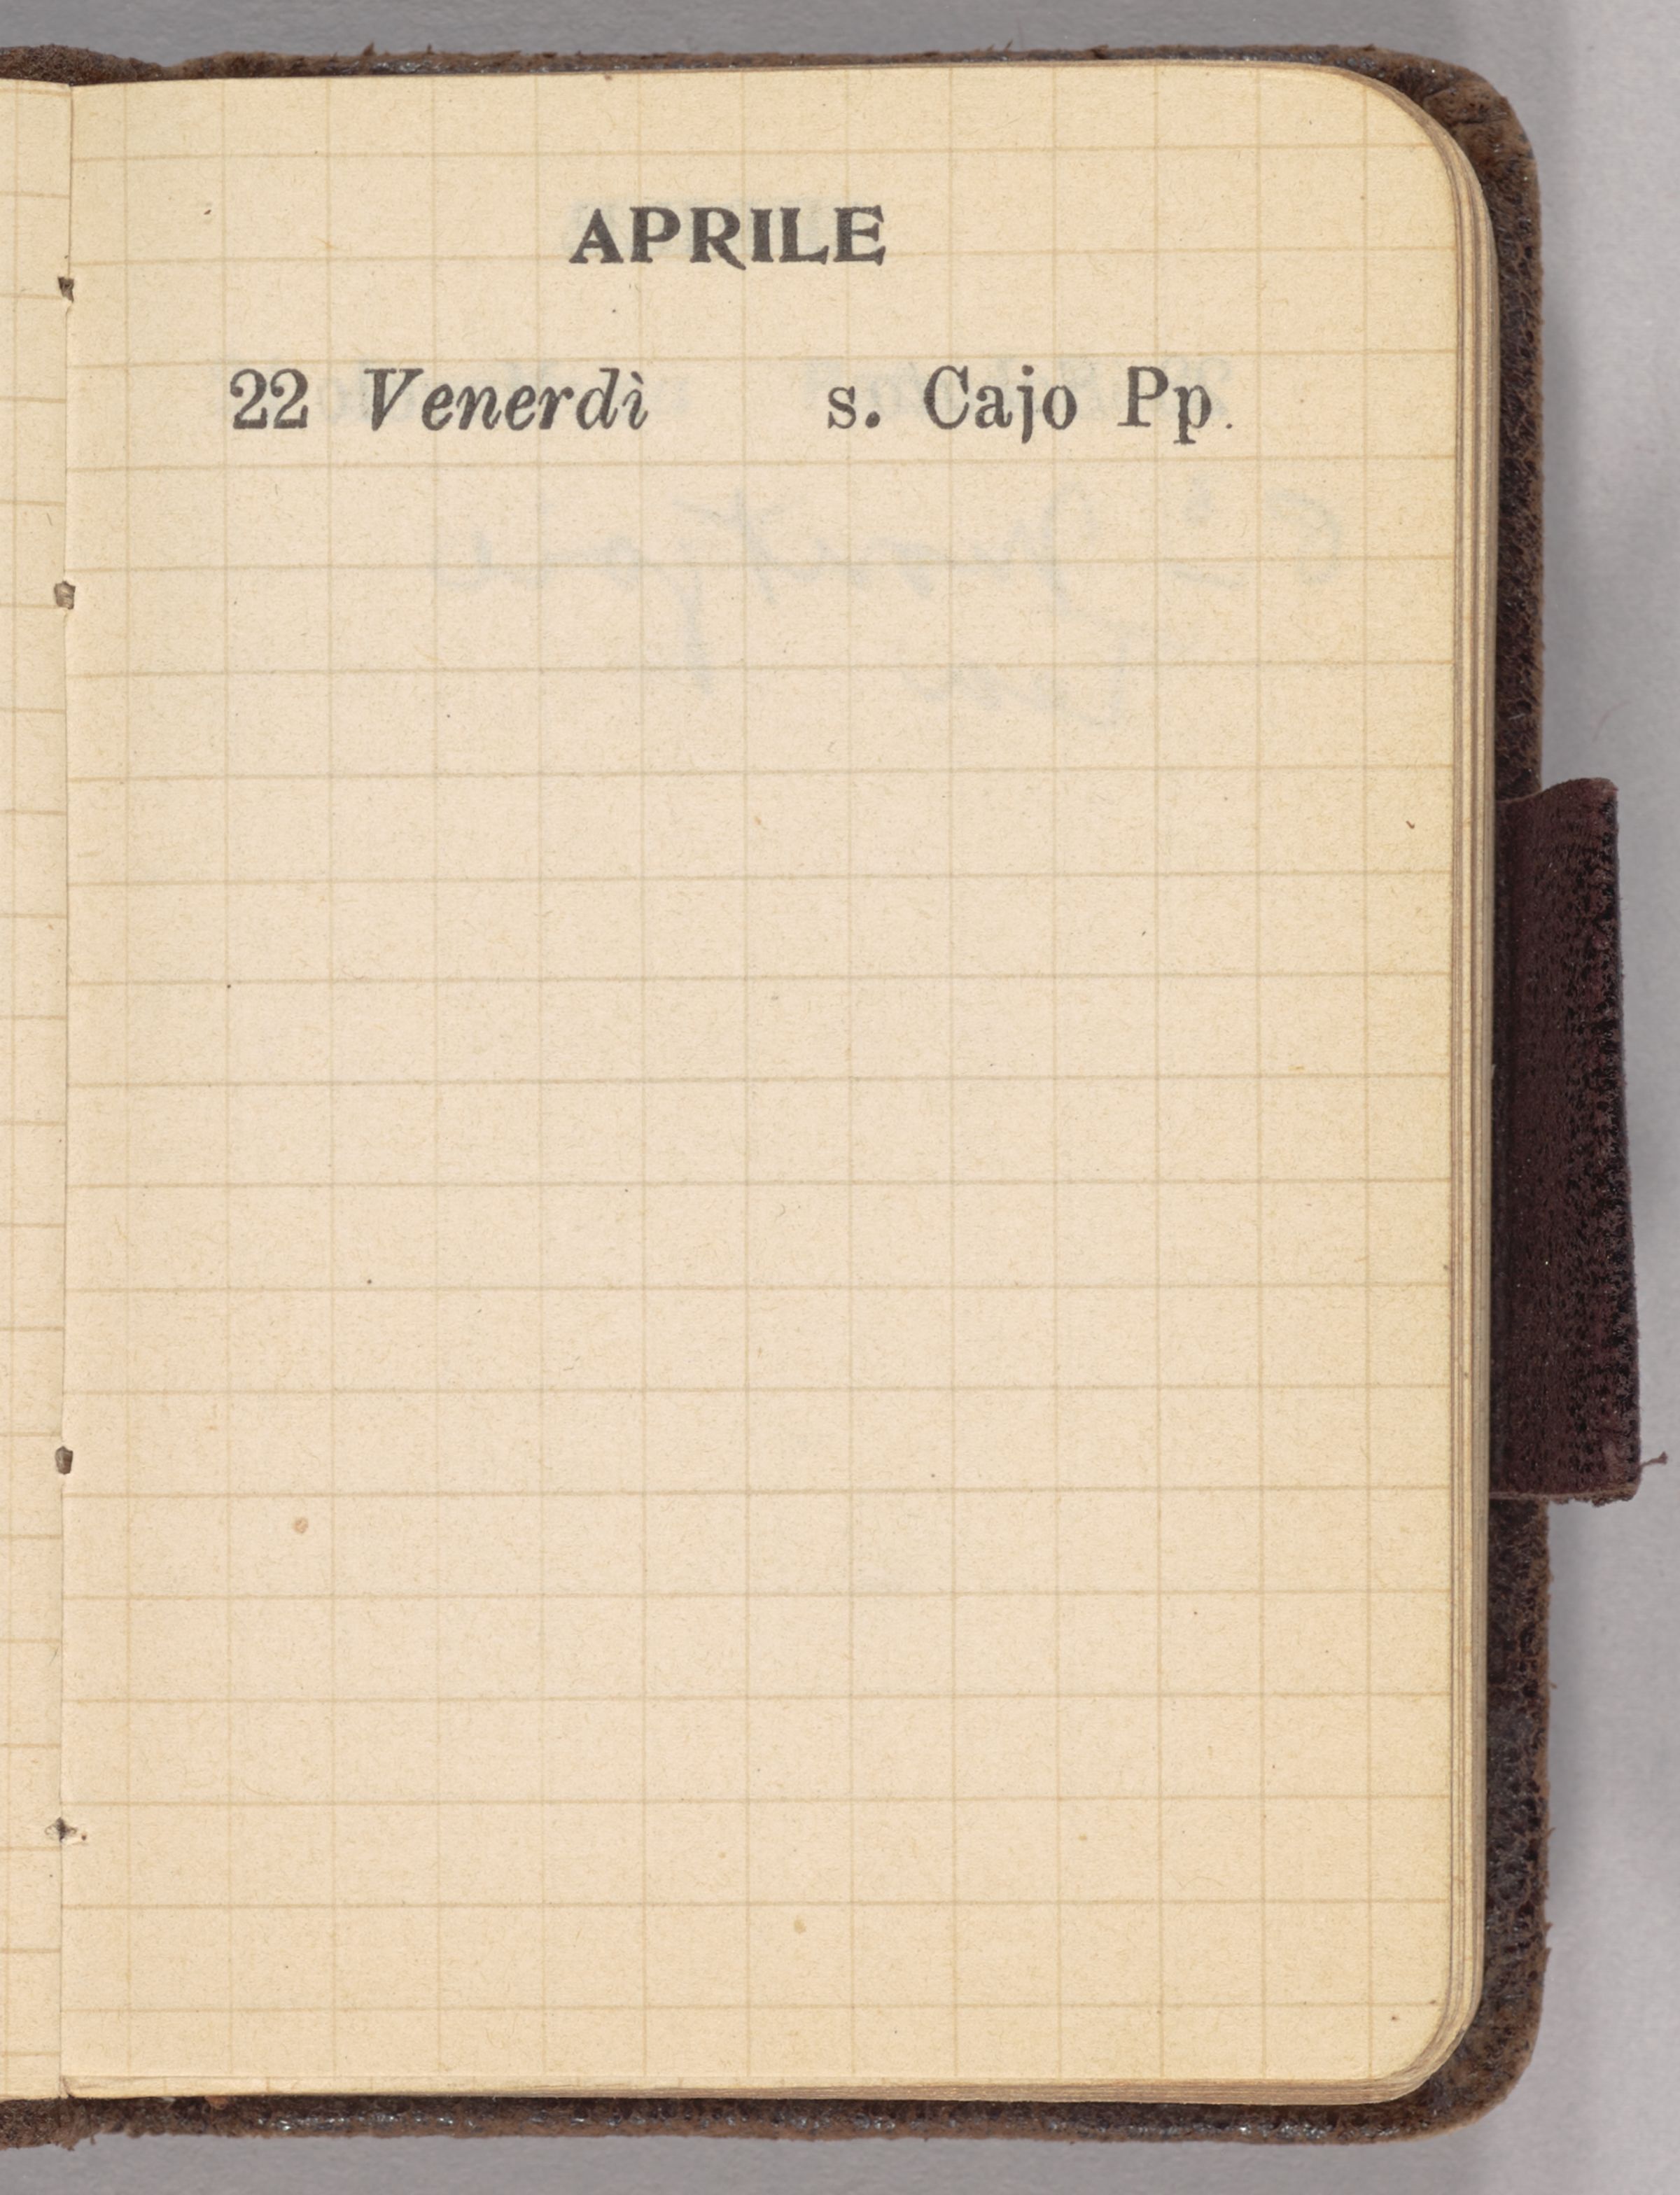 APRILE
22 Venerdì s. Cajo Pp.